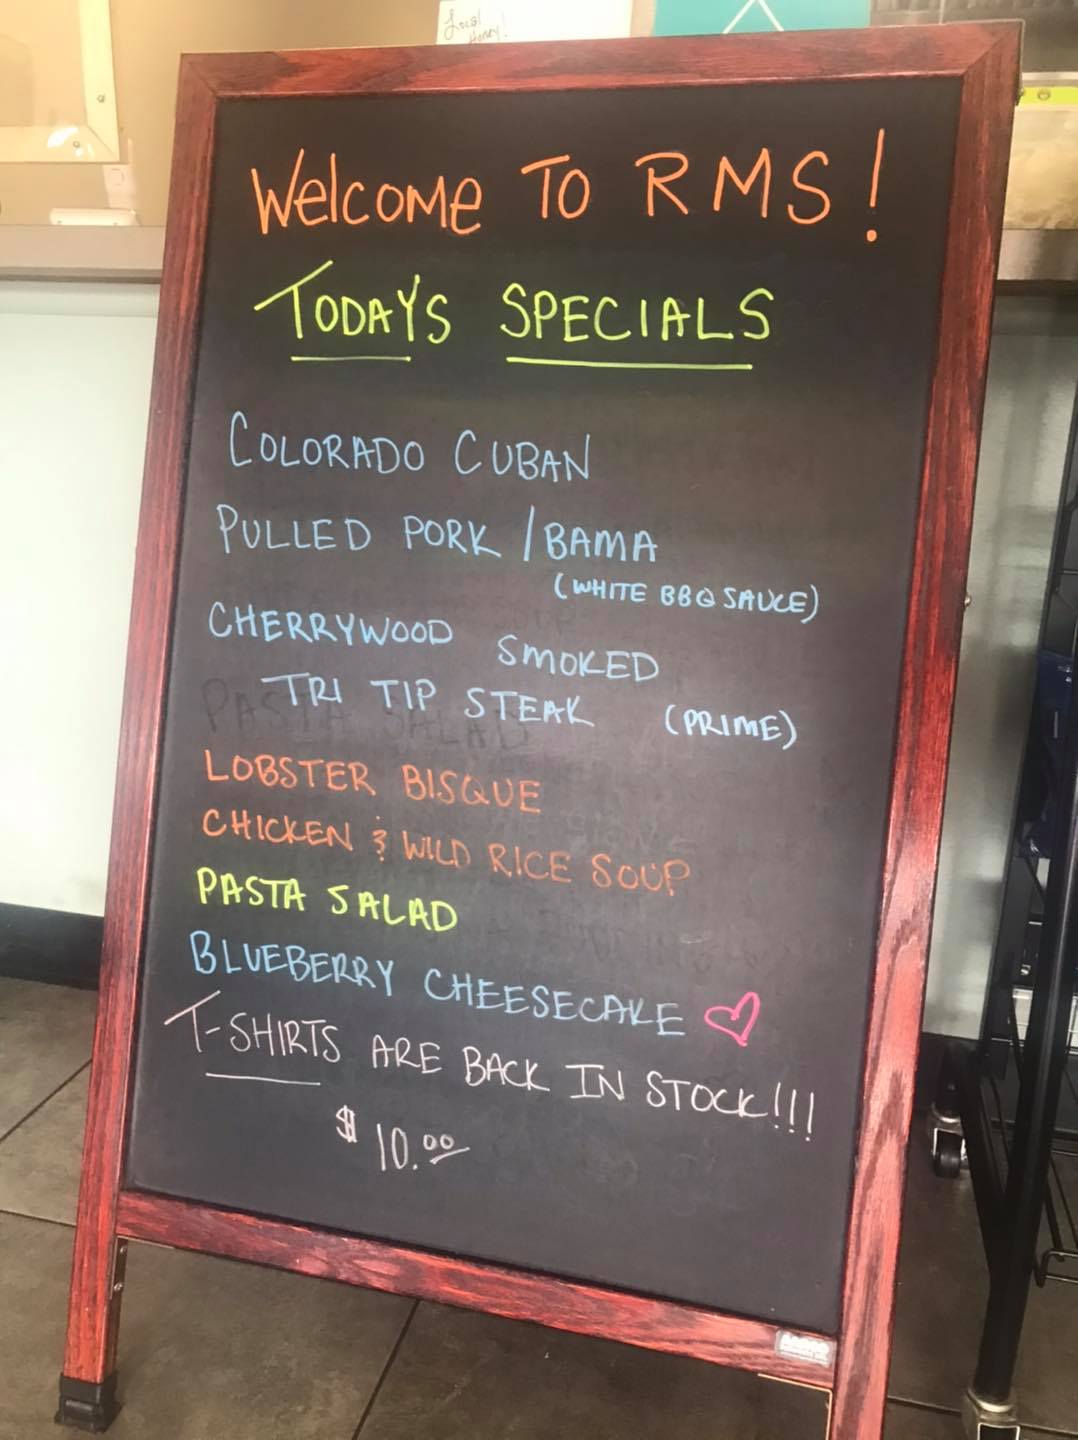 Local
Honey!
Welcome TO RMS!
TODAYS SPECIALS
COLORADO CUBAN
PULLED PORK / BAMA
(WHITE BBQ SAUCE)
CHERRYWOOD SMOKED
TRI TIP STEAK (PRIME)
PASTA SALAD
LOBSTER BISQUE
CHICKEN & WILD RICE SOUP
PASTA SALAD
BLUEBERRY CHEESECAKE
T-SHIRTS ARE BACK IN STOCK!!!
$10.00